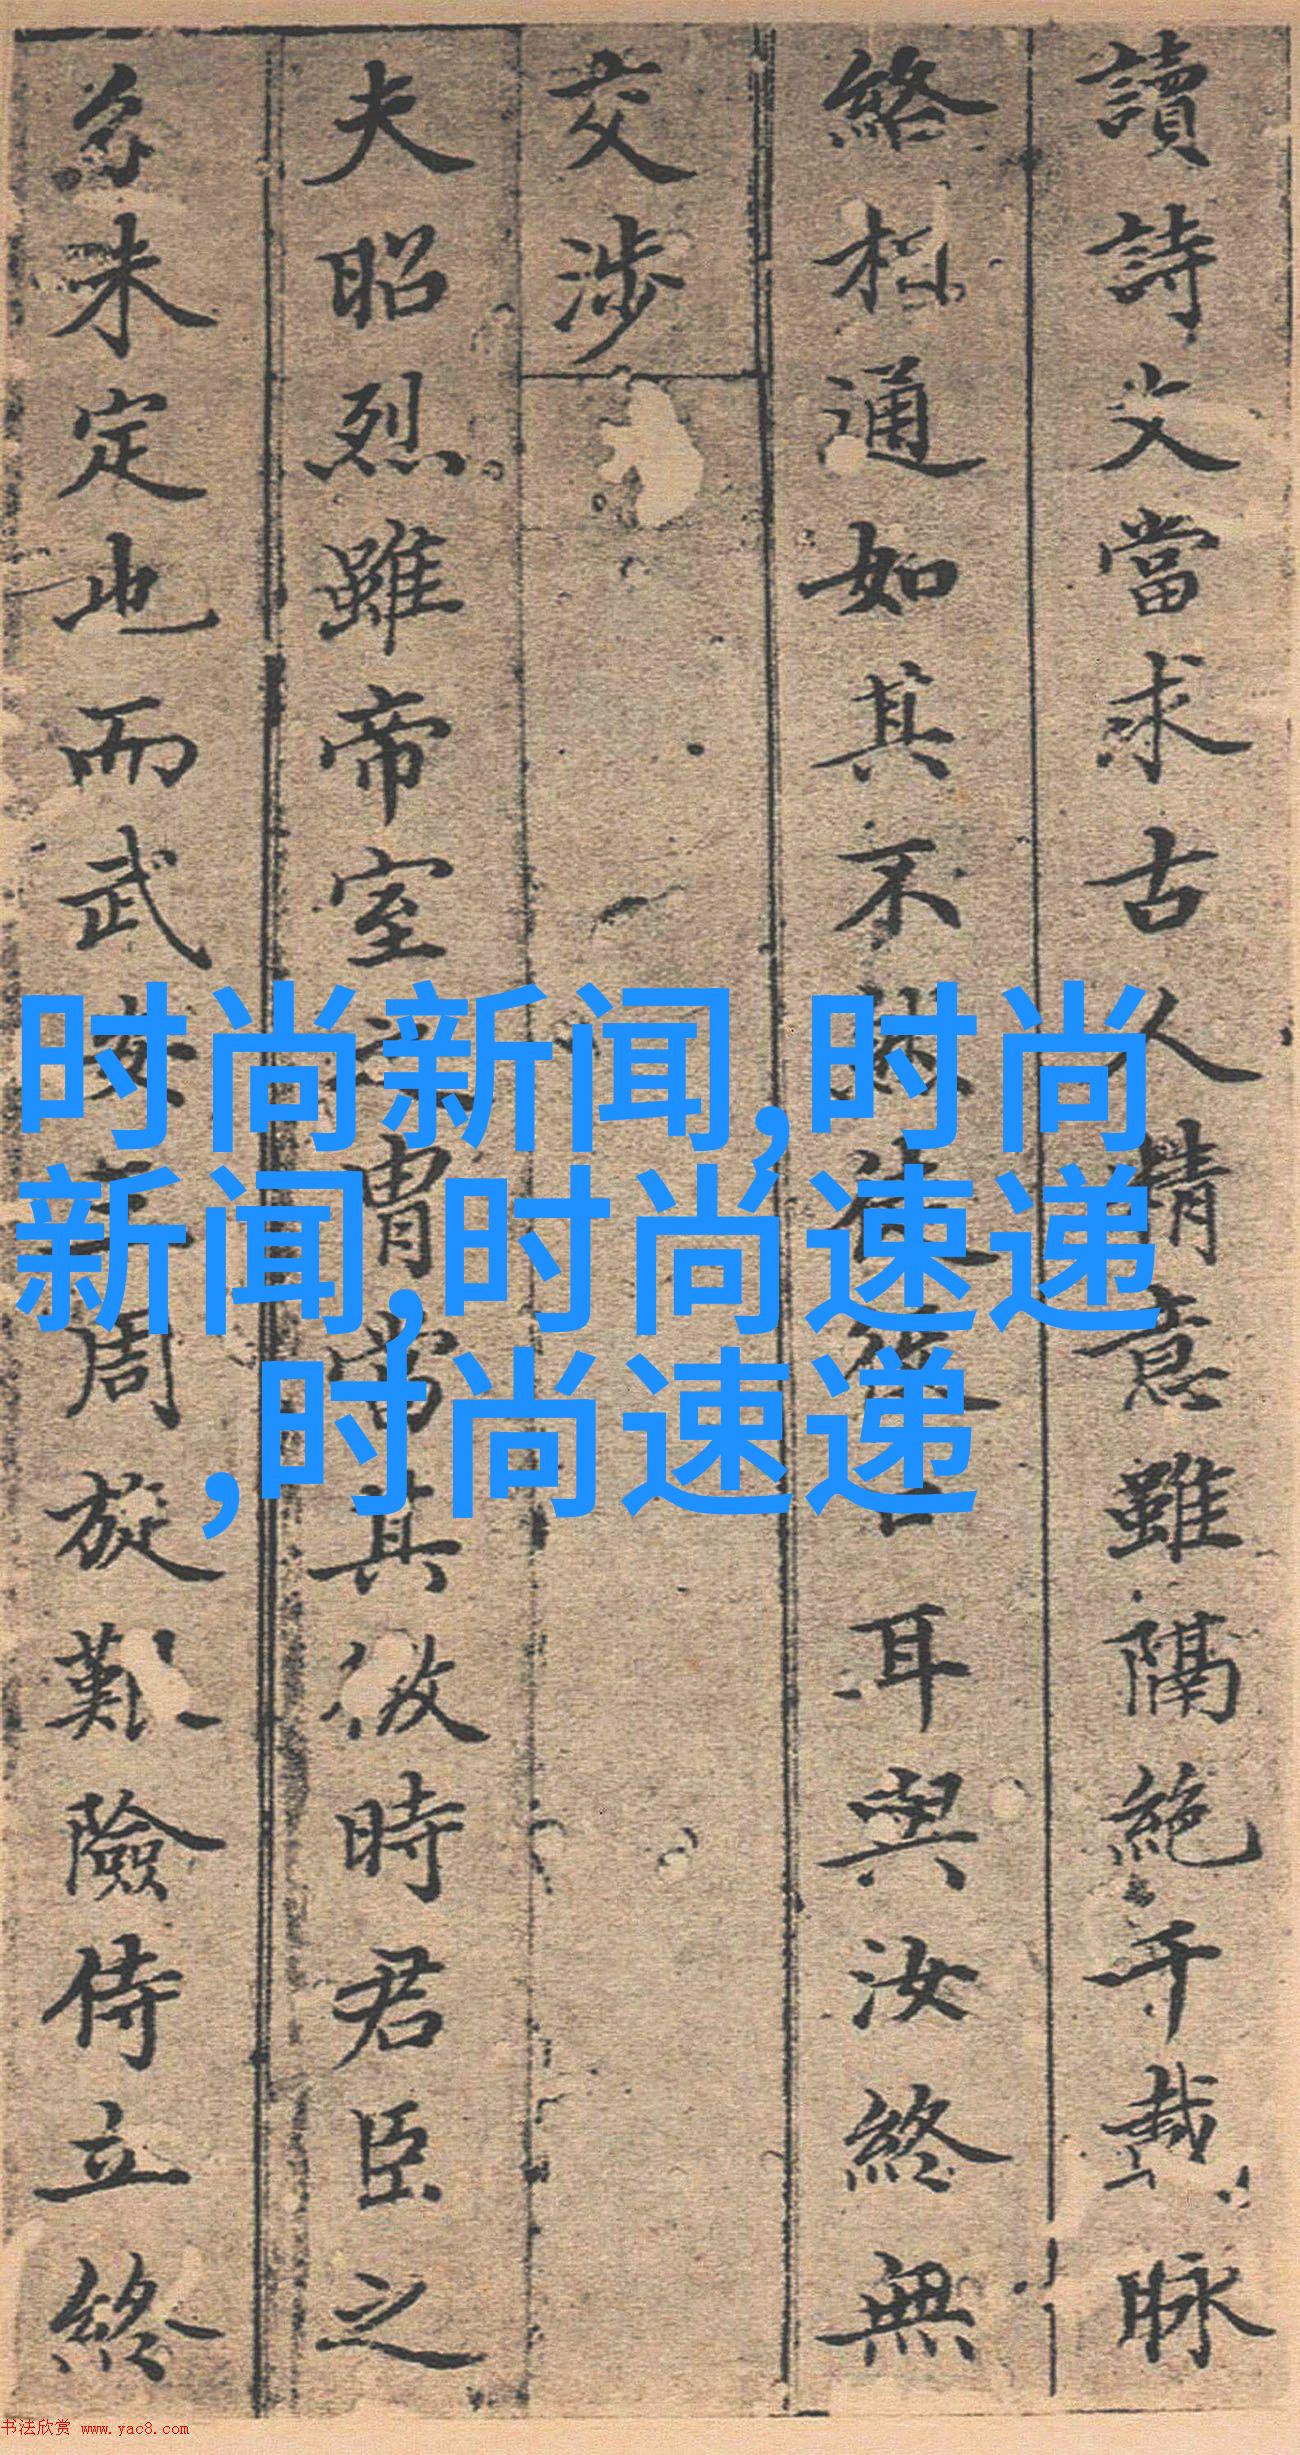 讀詩文當求古人精意雖隔絶千載脉
絡相通如其不 耳與汝終無
交涉
夫昭烈雖帝室 胄當其 時君臣之
未定也而武 周旋艱險侍立終
时尚新闻,时尚
新闻,时尚速递
,时尚速递
书法欣赏 www.yac8.com